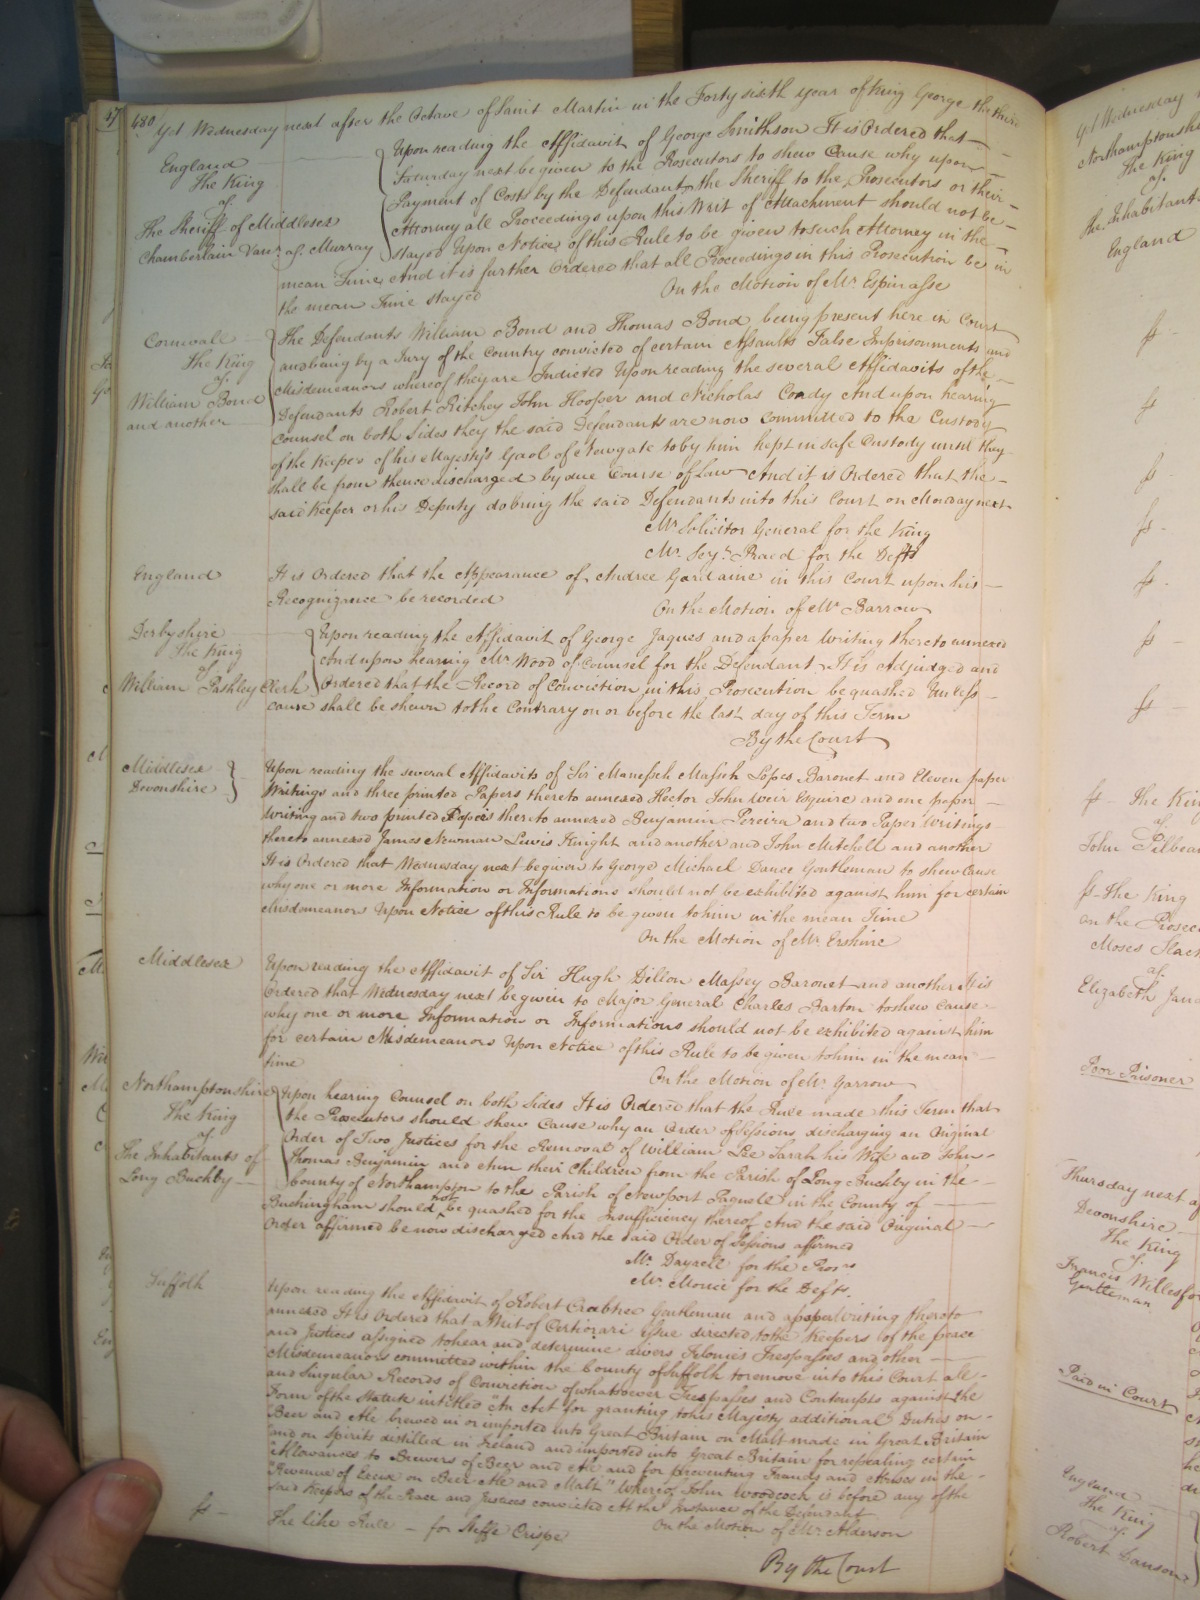 480
Yet Wednesday next after the Octave of Saint Martin in the Forty sixth year of King George the third
England
The King
agt.
The Sheriff of Middlesex
Chamberlain agt. Murray
Upon reading the Affidavit of George Smithson It is Ordered that
Saturday next be given to the Prosecutors to shew Cause why upon
Payment of Costs by the Defendant the Sheriff to the Prosecutors or their
Attorney all Proceedings upon this Writ of Attachment should not be
stayed Upon Notice of this Rule to be given to such Attorney in the
mean Time And it is further Ordered that all Proceedings in this Prosecution be in
the mean Time stayed
On the Motion of Mr. Espinasse
Cornwall
The King
agt.
William Bond
and another
The Defendants William Bond and Thomas Bond being present here in Court
and being by a Jury of the Country convicted of certain Assaults False Imprisonments and
Misdemeanors whereof they are Indicted Upon reading the several Affidavits of the
Defendants Robert Ritchey John Hooper and Nicholas Coady And upon hearing
Counsel on both Sides they the said Defendants are now committed to the Custody
of the Keeper of his Majesty's Gaol of Newgate to by him kept in safe Custody until they
shall be from thence discharged by due Course of Law And it is Ordered that the
said Keeper or his Deputy do bring the said Defendants into this Court on Monday next
Mr. Solicitor General for the King
Mr. Serjt. Praed for the Defts
England
It is Ordered that the Appearance of Andree Gardanne in this Court upon his
Recognizance be recorded
On the Motion of Mr. Barrow
Derbyshire
The King
agt.
William Pashley Clerk
Upon reading the Affidavit of George Jaques and a paper Writing thereto annexed
And upon hearing Mr. Wood of Counsel for the Defendant It is Adjudged and
Ordered that the Record of Conviction in this Prosecution be quashed Unless
cause shall be shewn to the Contrary on or before the last day of this Term
By the Court
Middlesex
Devonshire
Upon reading the several Affidavits of Sir Manasseh Masseh Lopes Baronet and Eleven paper
Writings and three printed Papers thereto annexed Hector John Weir Esquire and one paper
Writing and two printed Papers thereto annexed Benjamin Pereira and two Paper Writings
thereto annexed James Newman Lewis Knight and another and John Mitchell and another
It is Ordered that Wednesday next be given to George Michael Dance Gentleman to shew Cause
why one or more Information or Informations should not be exhibited against him for certain
Misdemeanors Upon Notice of this Rule to be given to him in the mean Time
On the Motion of Mr. Erskine
Middlesex
Upon reading the Affidavit of Sir Hugh Dillon Massey Baronet and another It is
Ordered that Wednesday next be given to Major General Charles Barton to shew Cause
why one or more Information or Informations should not be exhibited against him
for certain Misdemeanors Upon Notice of this Rule to be given to him in the mean
time
On the Motion of Mr. Garrow
Northamptonshire
The King
agt.
The Inhabitants of
Long Buckby
Upon hearing Counsel on both Sides It is Ordered that the Rule made this Term that
the Prosecutors should shew Cause why an Order of Sessions discharging an Original
Order of Two Justices for the Removal of William Lee Sarah his Wife and John
Thomas Benjamin and Ann their Children from the Parish of Long Buckby in the
County of Northampton to the Parish of Newport Pagnell in the County of
Buckingham should not be quashed for the Insufficiency thereof And the said Original
Order affirmed be now discharged And the said Order of Sessions affirmed
Mr. Dayrell for the Pros.rs
Mr. Morice for the Defts.
Suffolk
Upon reading the Affidavit of Robert Crabtree Gentleman and a paper Writing thereto
annexed It is Ordered that a Writ of Certiorari issue directed to the Keepers of the peace
and Justices assigned to hear and determine divers Felonies Trespasses and other
Misdemeanors committed within the County of Suffolk to remove into this Court all
and Singular Records of Conviction of whatsoever Trespasses and Contempts against the
Form of the Statute intitled "An Act for granting to his Majesty additional Duties on
"Beer and Ale brewed in or imported into Great Britain on Malt made in Great Britain
"and on Spirits distilled in Ireland and imported into Great Britain for repealing certain
"Allowances to Brewers of Beer and Ale and for preventing Frauds and Abuses in the
"Revenue of Excise on Beer Ale and Malt" whereof John Woodcock is before any of the
said Keepers of the Peace and Justices convicted At the Instance of the Defendant
On the Motion of Mr. Alderson
ss
The like Rule - for Steffe Crispe
By the Court
Yet Wednesday
Northamptonshire
The King
agt.
the Inhabitants
England
ss
ss
ss
ss
ss
ss
ss
ss - The King
agt.
John Tilbea
ss - The King
on the Prosec
Moses Slack
agt.
Elizabeth Jan
Poor Prisoner
Thursday next a
Devonshire
The King
agt.
Francis Willesfo
Gentleman
Paid in Court
England
The King
agt.
Robert